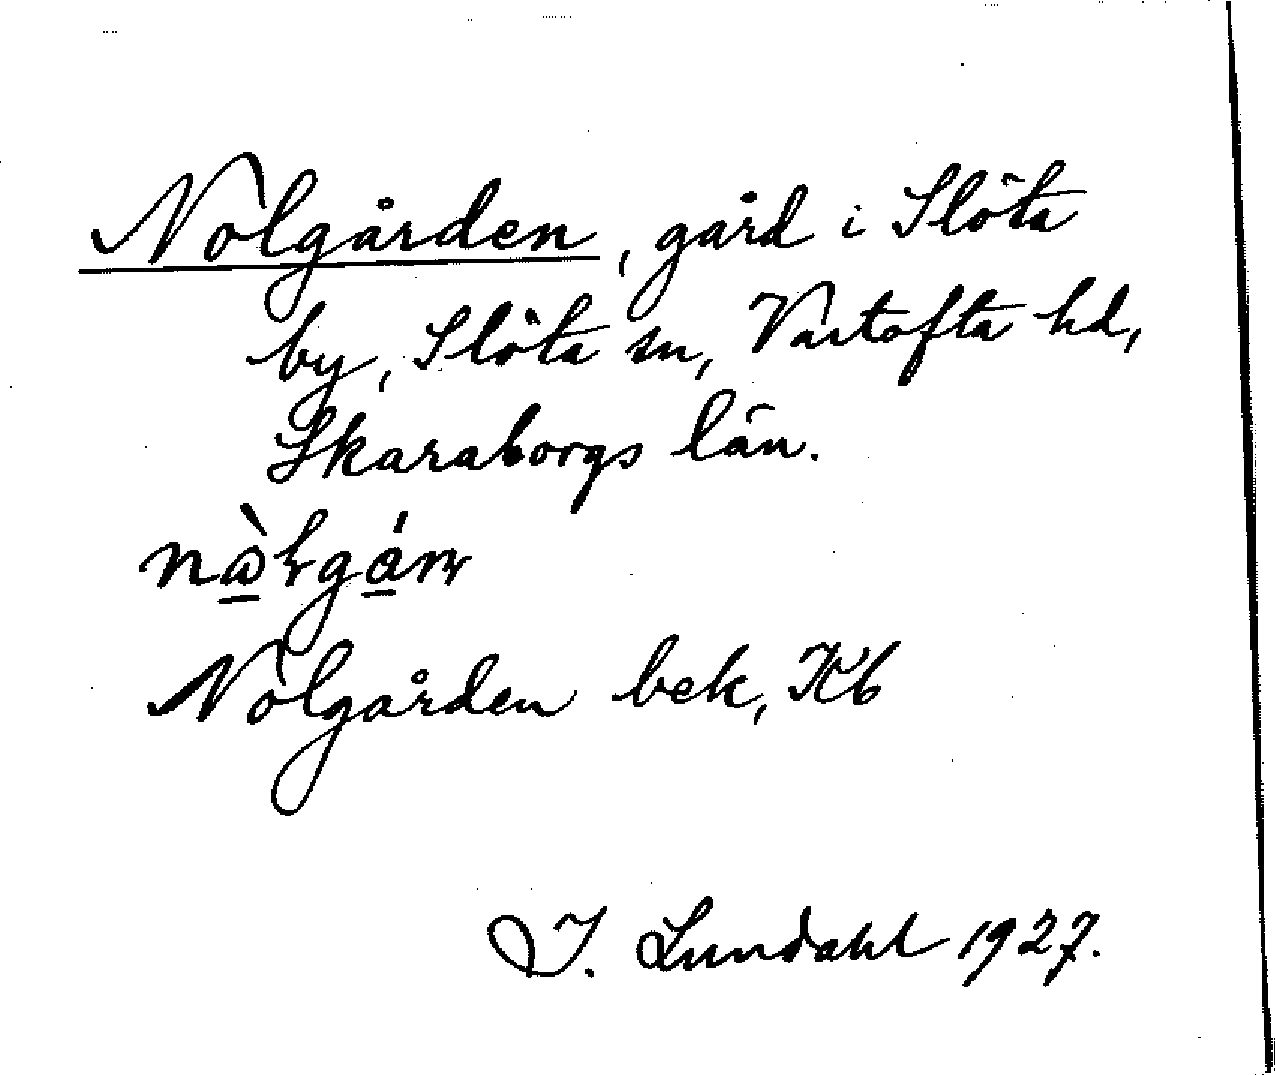 Nolgården, gård i Slöta
by, Slöta sn, Vartofta hd,
Skaraborgs län.
Nolgården bek, Kb
I. Lundahl 1927.